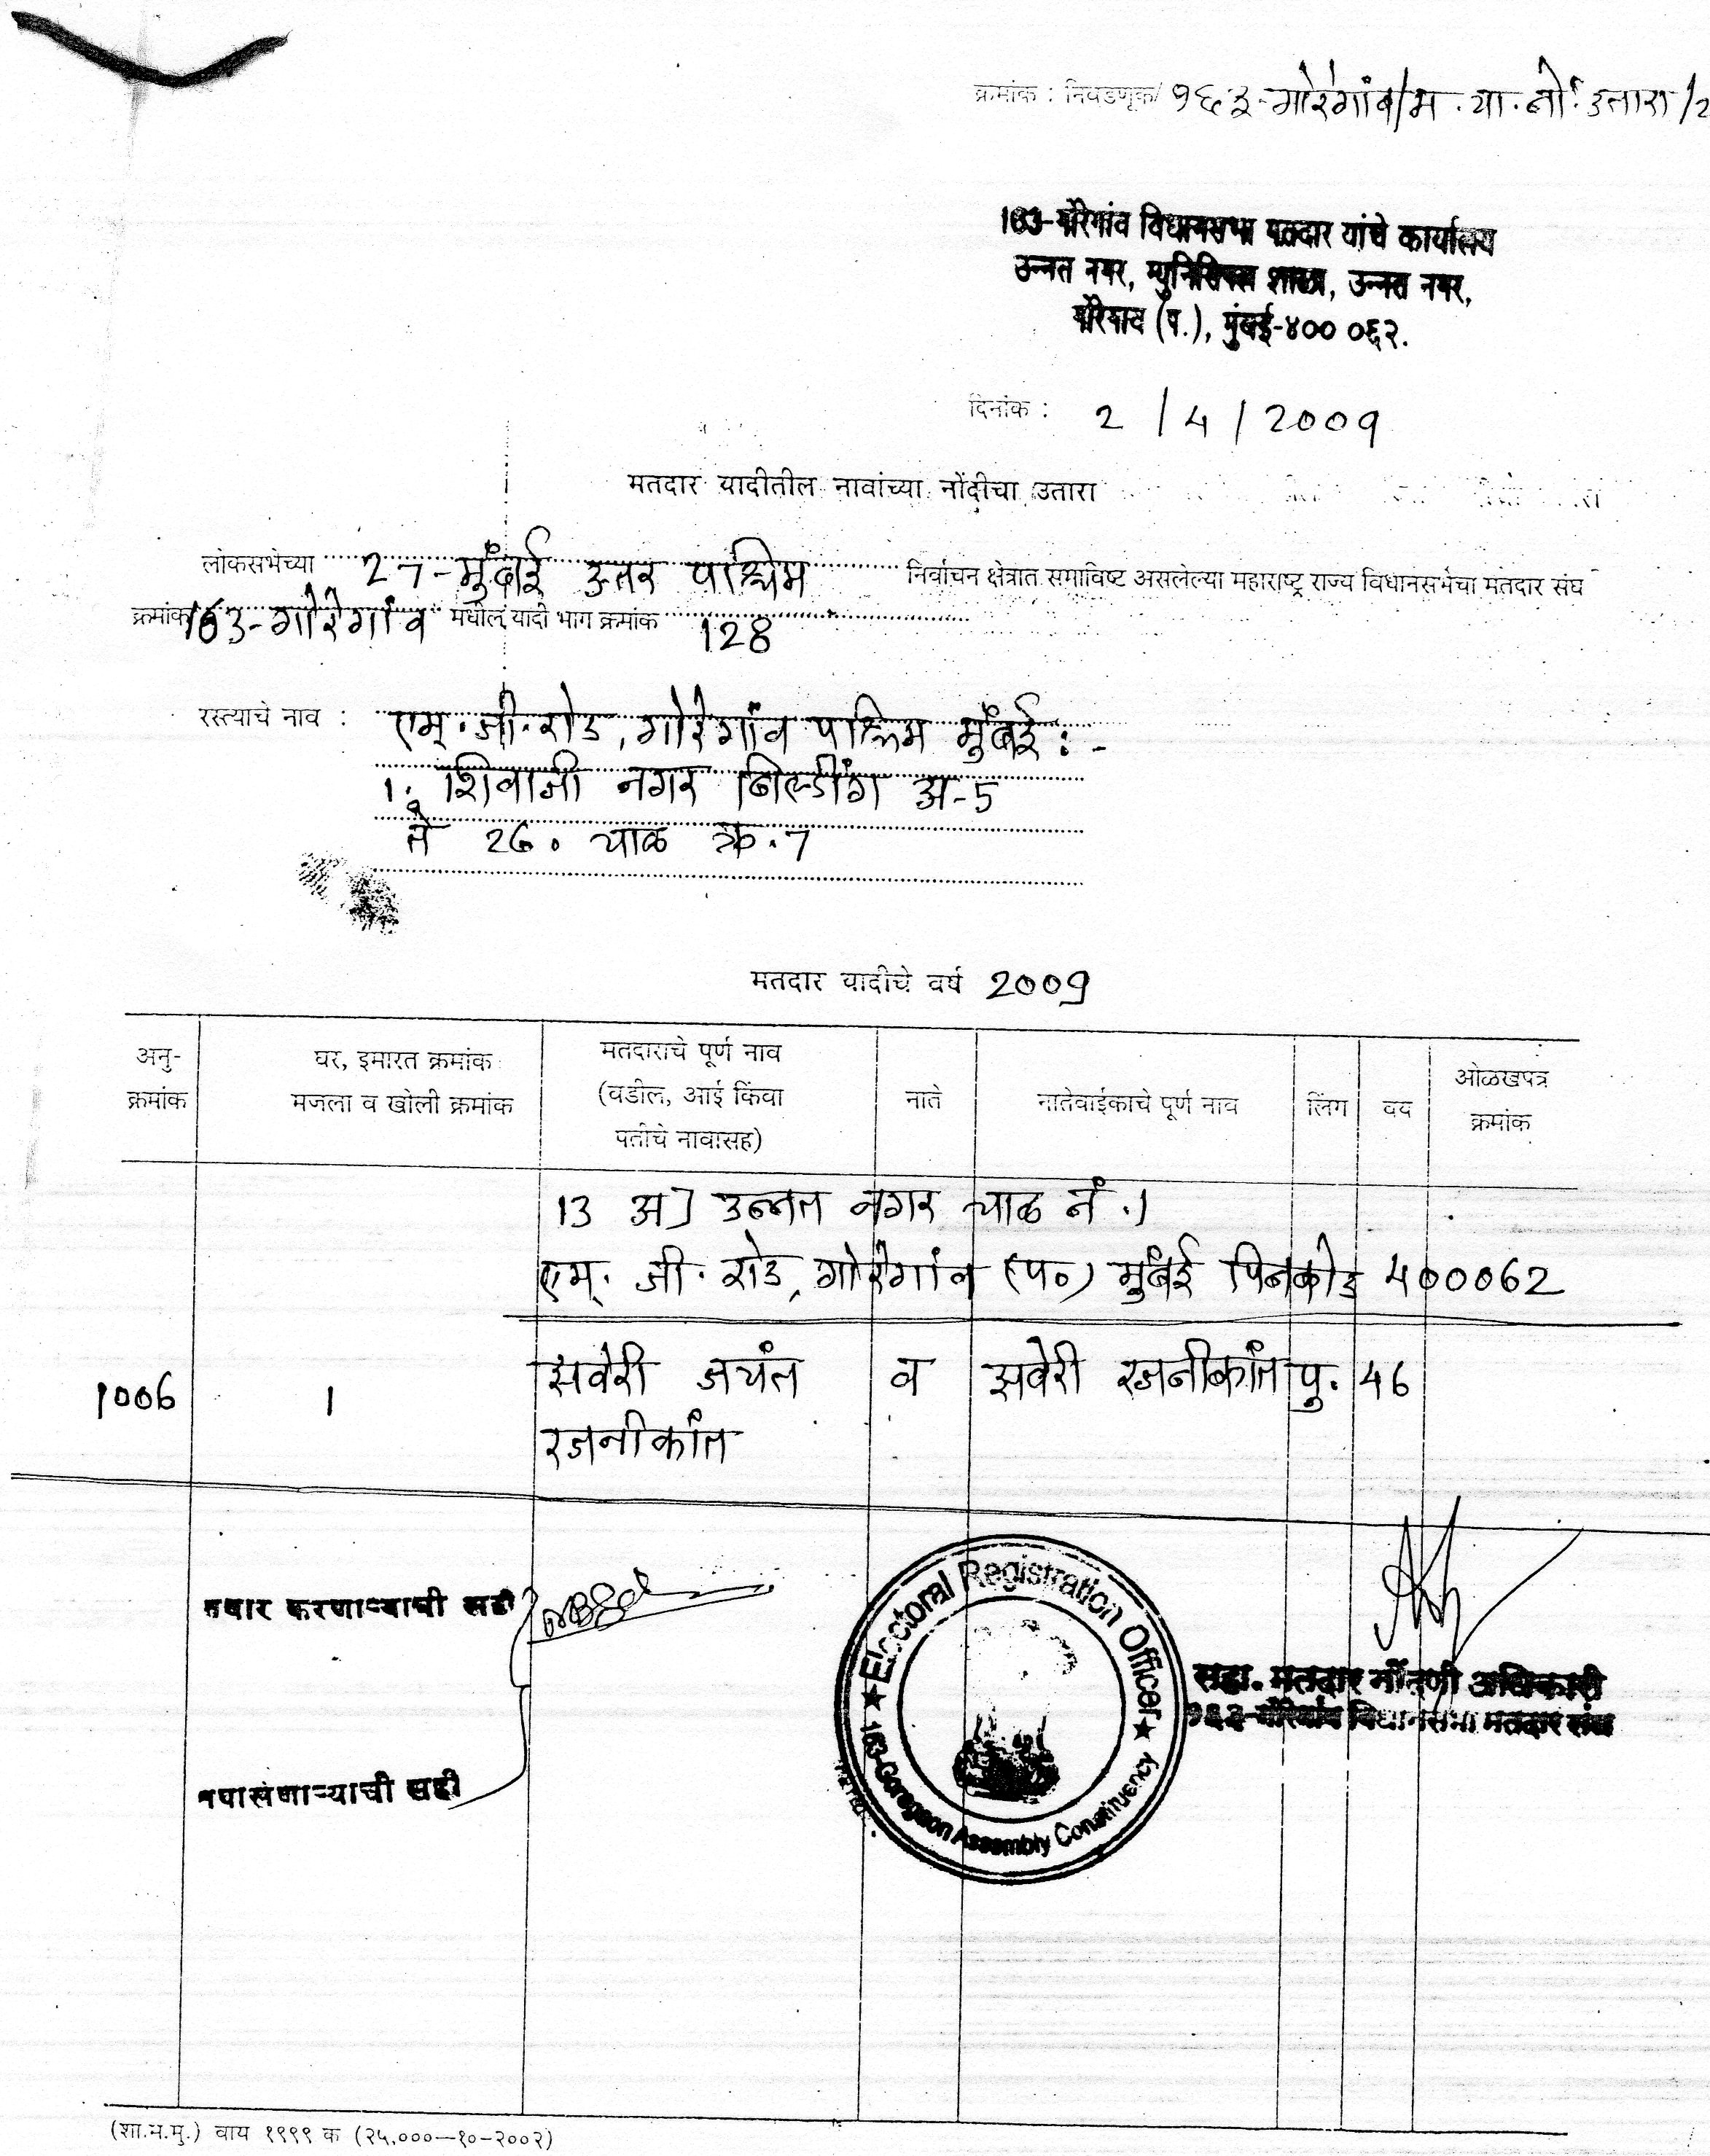 क्रमांक : निवडणूक/ १६३-गोरेगांव/म.या.नों.उतारा/2
163-गोरेगांव विधानसभा मतदार यांचे कार्यालय
उन्नत नगर, म्युनिसिपल शाळा, उन्नत नगर,
गोरेगाव (प.), मुंबई-४०० ०६२.
दिनांक : 2/4/2009
मतदार यादीतील नावांच्या नोंदीचा उतारा
लोकसभेच्या 27-मुंबई उत्तर पश्चिम निर्वाचन क्षेत्रात समाविष्ट असलेल्या महाराष्ट्र राज्य विधानसभेचा मतदार संघ
क्रमांक 163-गोरेगांव मधील यादी भाग क्रमांक 128
रस्त्याचे नाव : एम.जी.रोड, गोरेगांव पश्चिम मुंबई :-
1: शिवाजी नगर बिल्डींग अ-5
ते 26. चाळ क्र.7
मतदार यादीचे वर्ष 2009
अनु-क्रमांक घर, इमारत क्रमांक मजला व खोली क्रमांक मतदाराचे पूर्ण नाव (वडील, आई किंवा पतीचे नावासह) नाते नातेवाईकाचे पूर्ण नाव लिंग वय ओळखपत्र क्रमांक
13 अ] उन्नत नगर चाळ नं.1
एम. जी. रोड, गोरेगांव (प०) मुंबई पिनकोड 400062
1006 1 झवेरी जयंत व झवेरी रजनीकांत पु. 46
रजनीकांत
तयार करणाऱ्याची सही
Electoral Registration Officer
163-Goregaon Assembly Constituency
सहा. मतदार नोंदणी अधिकारी
१६३-गोरेगांव विधानसभा मतदार संघ
तपासणाऱ्याची सही
(शा.म.मु.) वाय १९९९ क (२५,०००—१०-२००२)